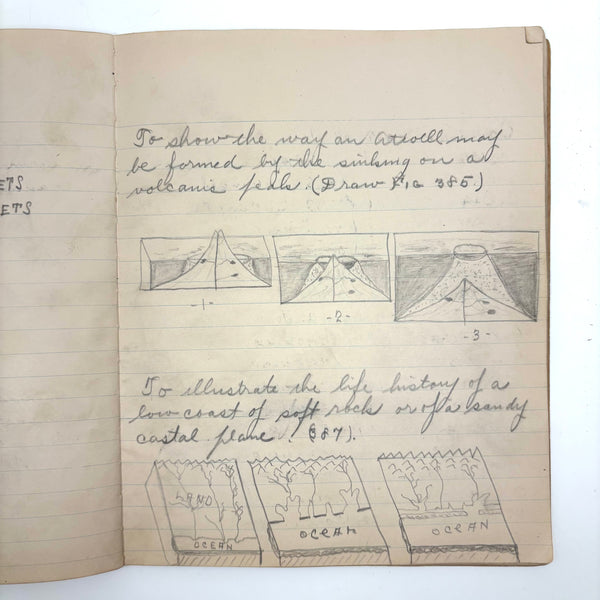 ETS
ETS
To show the way an atwell may
be formed by the sinking on a
volcanic peak. (Draw Fig 385.)
-1-
-2-
-3-
To illustrate the life history of a
low coast of soft rock or of a sandy
castal plane. (387).
LAND
OCEAN
OCEAN
OCEAN